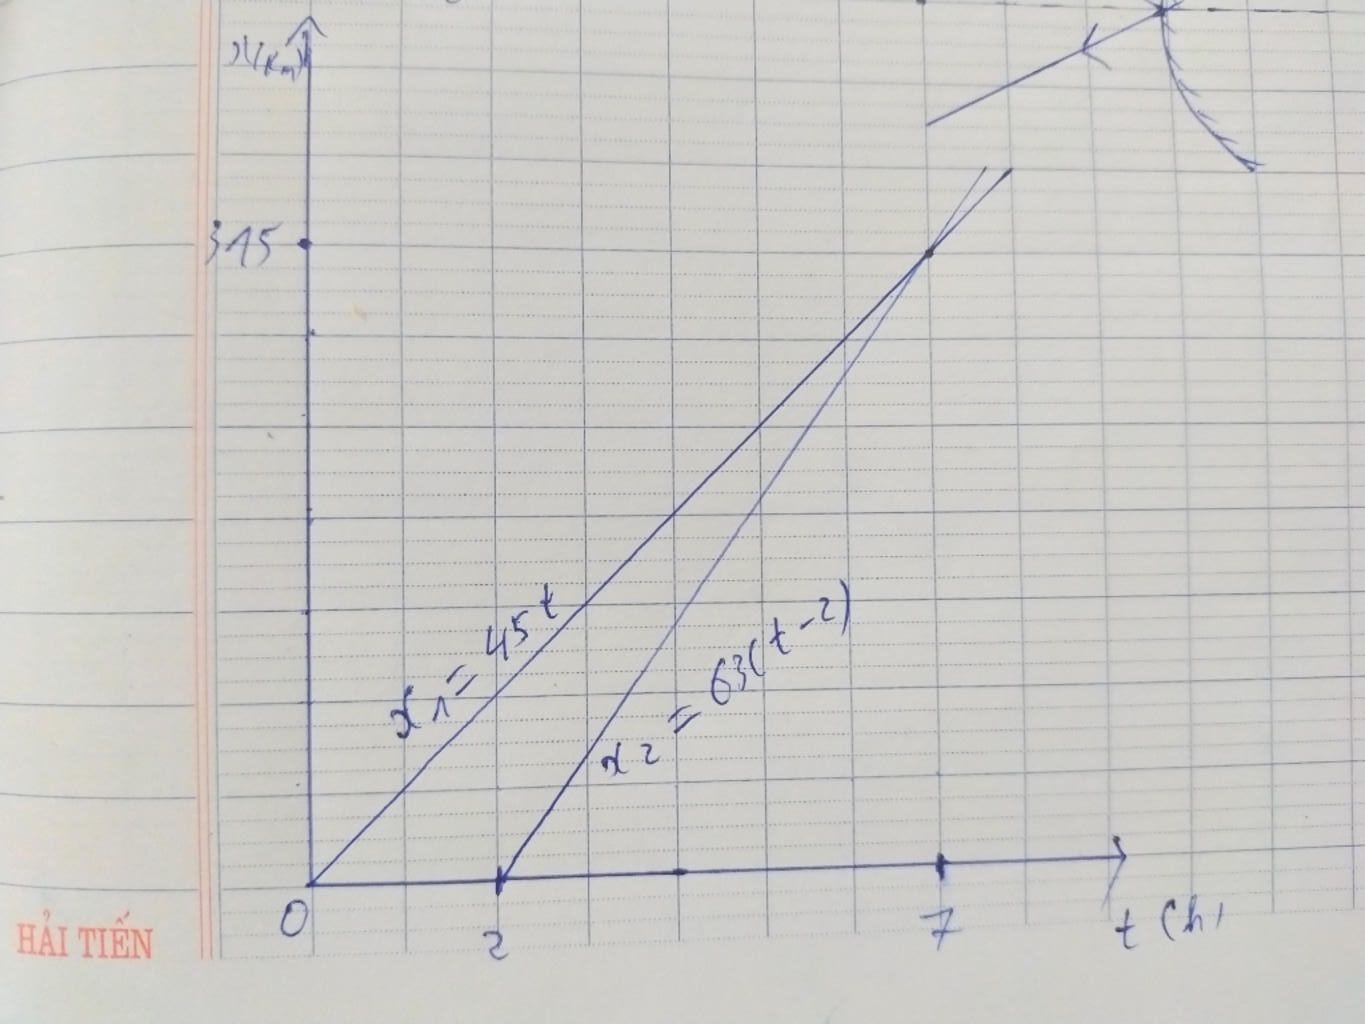 x(km)
315
x1 = 45t
x2 = 63(t-2)
0
2
7
t (h)
HẢI TIẾN